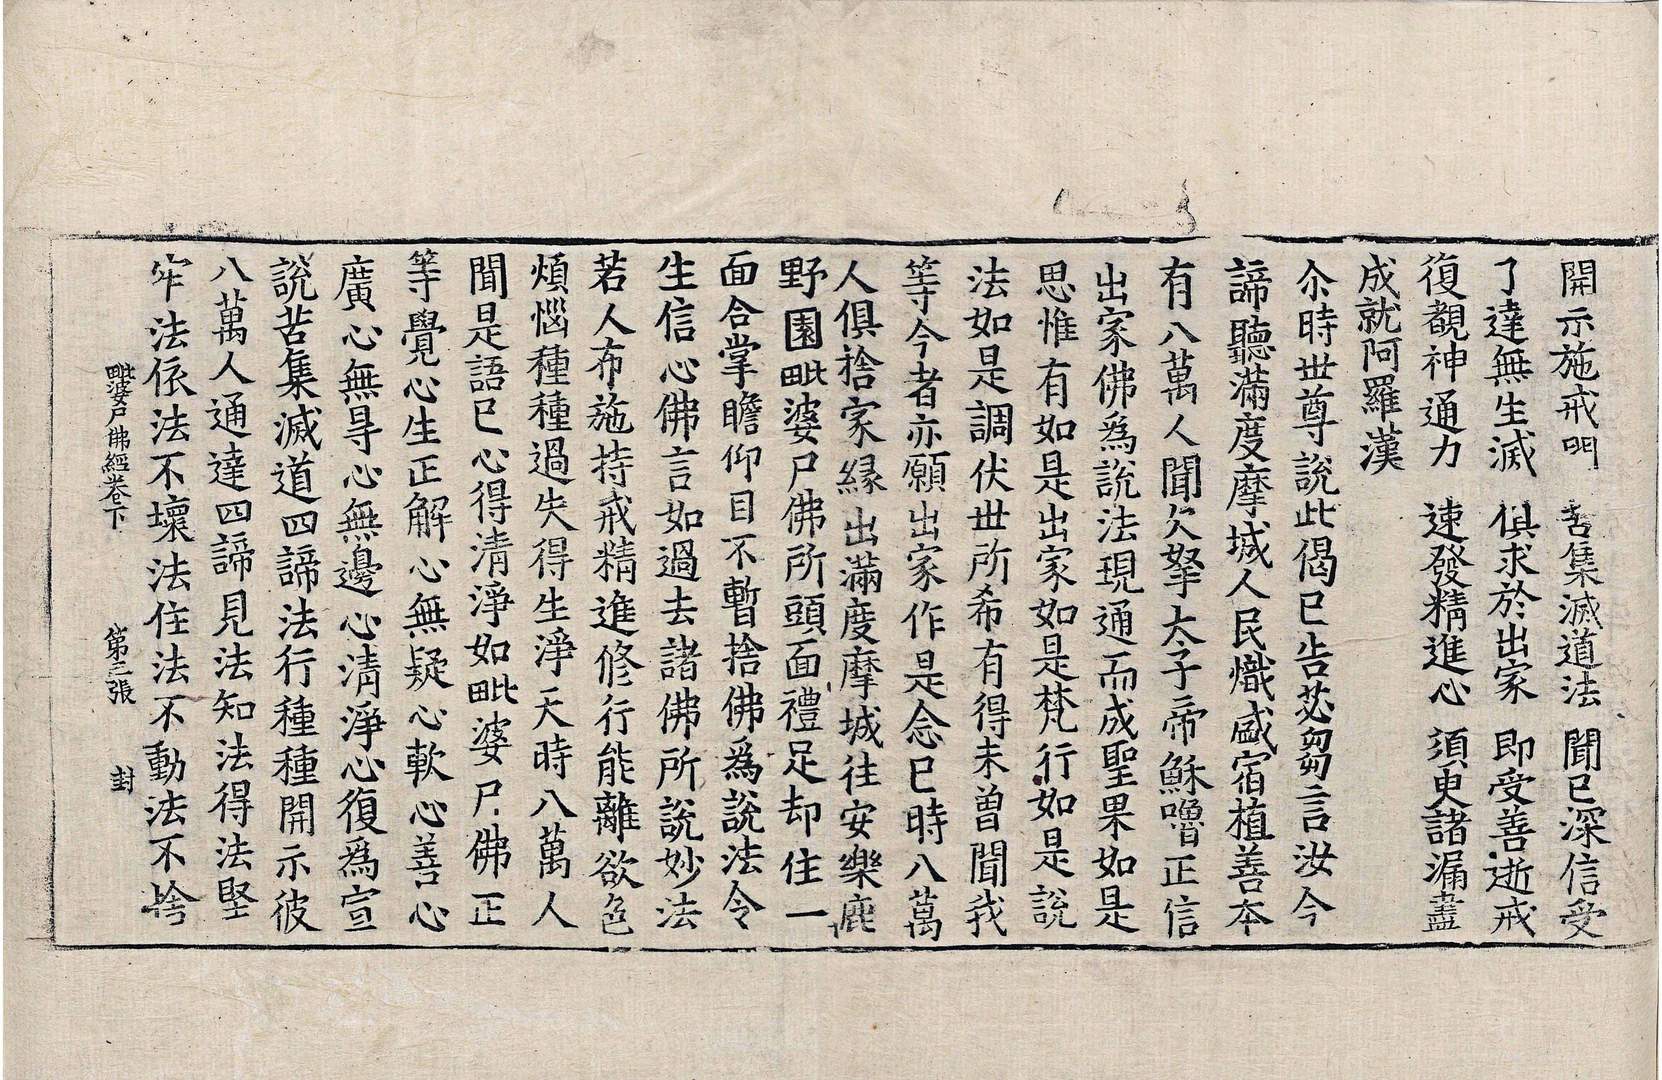 開示施戒明　苦集滅道法　聞已深信受
了達無生滅　俱求於出家　即受善逝戒
復覩神通力　速發精進心　須臾諸漏盡
成就阿羅漢
尒時世尊說此偈已告苾芻言汝今
諦聽滿度摩城人民熾盛宿植善本
有八萬人聞欠拏太子帝穌嚕正信
出家佛爲說法現通而成聖果如是
思惟有如是出家如是梵行如是說
法如是調伏世所希有得未曾聞我
等今者亦願出家作是念已時八萬
人俱捨家緣出滿度摩城往安樂鹿
野園毗婆尸佛所頭面禮足却住一
面合掌瞻仰目不暫捨佛爲說法令
生信心佛言如過去諸佛所說妙法
若人布施持戒精進修行能離欲色
煩惱種種過失得生淨天時八萬人
聞是語已心得清淨如毗婆尸佛正
等覺心生正解心無疑心軟心善心
廣心無㝵心無邊心清淨心復爲宣
說苦集滅道四諦法行種種開示彼
八萬人通達四諦見法知法得法堅
牢法依法不壞法住法不動法不捨
毗婆尸佛經卷下　第三張　封